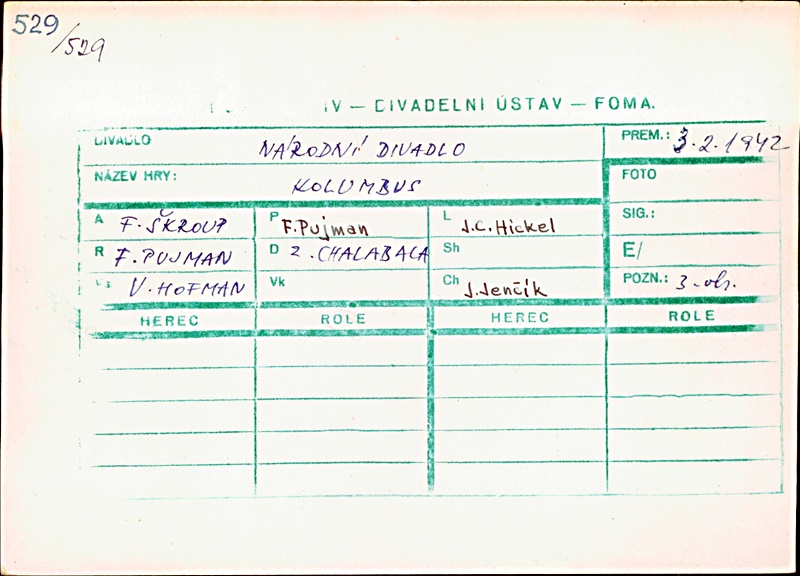 529
/529
IV — DIVADELNÍ ÚSTAV — FOMA.
DIVADLO NÁRODNÍ DIVADLO PREM.: 3.2.1942
NÁZEV HRY: KOLUMBUS FOTO
A F. ŠKROUP P F. Pujman L J.C. Hickel SIG.:
R F. PUJMAN D Z. CHALABALA Sh E/
V. HOFMAN Vk Ch J. Jenčík POZN.: 3-obr.
HEREC ROLE HEREC ROLE